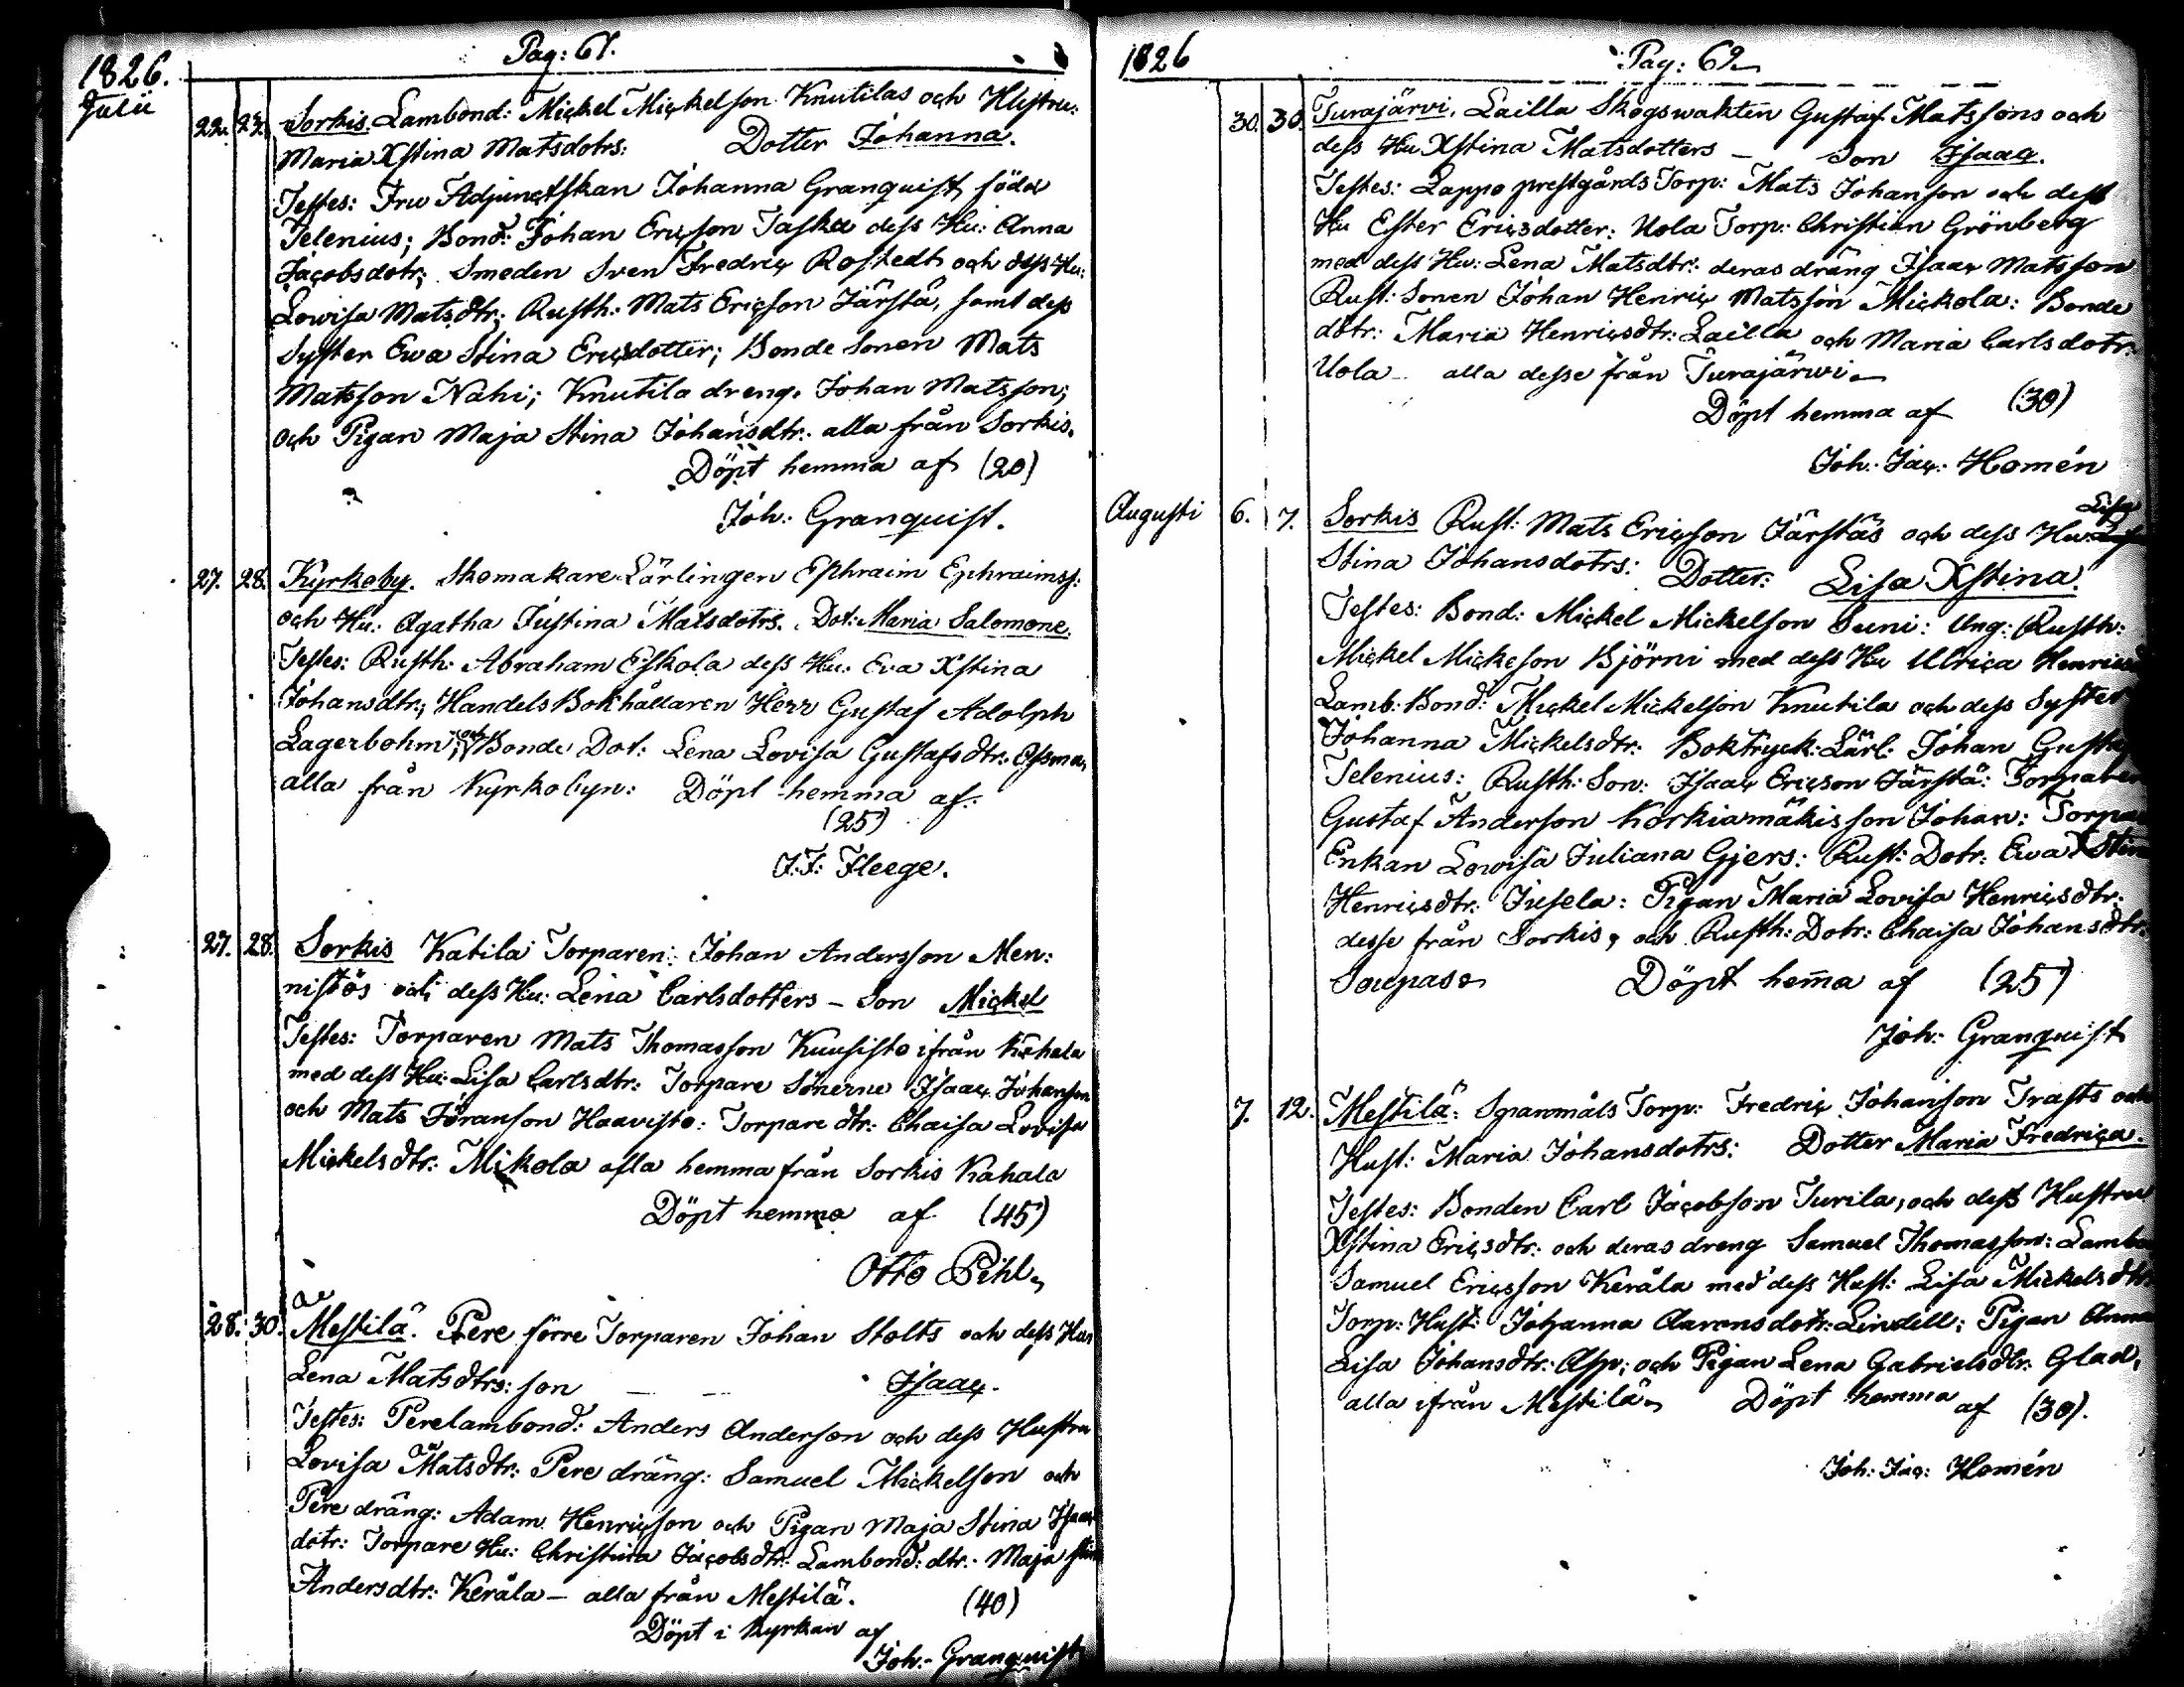 Pag: 61.
1826.
Julii
22. 23. Sorkis. Lambond: Mickel Mickelson Knutilas och Hustru:
Maria Xstina Matsdotrs: Dotter Johanna.
Testes: Fru Adjunctskan Johanna Granquist född
Telenius; Bond: Johan Ericson Taska dess Hu: Anna
Jacobsdotr; Smeden Sven Fredric Rostedt och dess Hu:
Lowisa Matsdtr; Rusth: Mats Ericson Järstä, samt dess
Syster Ewa Stina Ericsdotter; Bonde Sonen Mats
Matsson Nahi; Knutila dreng. Johan Matsson;
och Pigan Maja Stina Johansdtr. alla från Sorkis.
Döpt hemma af (20)
Joh: Granquist.
27. 28. Kyrkoby. Skomakare Lärlingen Ephraim Ephraimss:
och Hu: Agatha Justina Matsdotrs. Dot: Maria Salomone.
Testes: Rusth: Abraham Eskola dess Hu: Eva Xstina
Johansdtr; Handels Bokhållaren Herr Gustaf Adolph
Lagerbohm; och Bonde Dot: Lena Lovisa Gustafsdtr.
alla från Kyrkobyn: Döpt hemma af.
(25)
J.F: Fleege.
27. 28. Sorkis Katila Torparen: Johan Andersson Men:
nistös och dess Hu: Lena Carlsdotters – Son Mickel
Testes: Torparen Mats Thomasson Kuusisto ifrån Kahala
med dess Hu: Lisa Carlsdtr: Torpare Sönerne Isaac Johanson
och Mats Göranson Haavisto: Torpare dtr: Chaisa Lovisa
Mickelsdtr: Mikola alla hemma från Sorkis Kahala
Döpt hemma af (45)
Otto Pihl
28. 30. Mestilä. Pere förre Torparen Johan Stolts och dess Hus
Lena Matsdtrs: son Isaac.
Testes: Perelambond: Anders Anderson och dess Hustru
Lovisa Matsdtr: Pere dräng: Samuel Mickelson och
Pere dräng: Adam Henricson och Pigan Maja Stina Isaacs
dotr: Torpare Hu: Christina Jacobsdtr: Lambond: dtr: Maja Stin
Andersdtr: Keräla – alla från Mestilä. (40)
Döpt i Kyrkan af
Joh: Granquist
1826 Pag: 62
30. 30. Turajärvi. Lailla Skogswakten Gustaf Matssons och
dess Hu Xstina Matsdotters – Son Isaac.
Testes: Lappo prestgårds Torp: Mats Johanson och dess
Hu Ester Ericsdotter: Uola Torp: Christian Grönberg
med dess Hu: Lena Matsdtr: deras dräng Isaac Matsson
Rust: Sonen Johan Henric Matsson Mickola: Bonde
dotr: Maria Henricsdtr: Lailla och Maria Carlsdotr:
Uola – alla desse från Turajärwi
Döpt hemma af (30)
Joh: Jac: Homén
Augusti 6. 7. Sorkis Rust: Mats Ericson Järstäs och dess Hu: Lisa
Stina Johansdotrs: Dotter: Lisa Xstina.
Testes: Bond: Mickel Mickelson Suni: Ung: Rusth:
Mickel Mickeson Björni med dess Hu Ulrica Henricsd
Lamb: Bond: Mickel Mickelson Knutila och dess Syster
Johanna Mickelsdtr: Boktryck: Lärl: Johan Gustaf
Telenius: Rusth: Son: Isaac Ericson Järstä: Torparen
Gustaf Anderson Korkiamäkis son Johan: Torpar
Enkan Lowisa Juliana Gjers: Rust: Dotr: Ewa Stina
Henricsdtr: Jusela: Pigan Maria Lovisa Henricsdtr:
desse från Sorkis, och Rusth: Dotr: Chaisa Johansdtr.
Döpt hem̄a af (25)
Joh: Granquist
7. 12. Mestilä: Spanmåls Torp: Fredric Johanson Trasts och
Hust: Maria Johansdotrs: Dotter Maria Fredrica.
Testes: Bonden Carl Jacobson Turila, och dess Hustru
Xstina Ericsdtr: och deras dreng Samuel Thomasson: Lambo
Samuel Ericsson Keräla med dess Hust: Lisa Mickelsdtr
Torp: Hust: Johanna Aaronsdotr: Lindell: Pigan Anna
Lisa Johansdtr: Asp; och Pigan Lena Gabrielsdtr: Glad,
alla ifrån Mestilä Döpt hemma af (30).
Joh: Jac: Homén